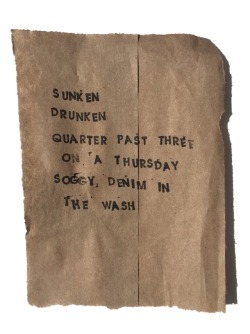 SUNKEN
DRUNKEN
QUARTER PAST THREE
ON A THURSDAY
SOGGY, DENIM IN
THE WASH